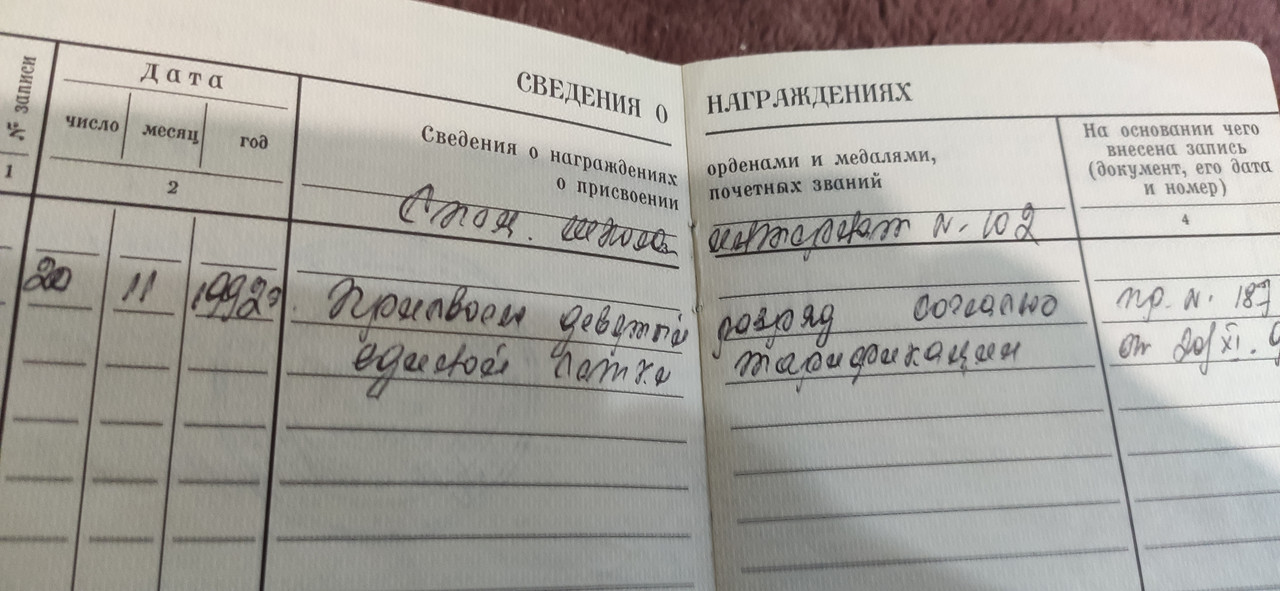 СВЕДЕНИЯ О НАГРАЖДЕНИЯХ
№ записи
Дата
число месяц год
Сведения о награждениях орденами и медалями,
о присвоении почетных званий
На основании чего
внесена запись
(документ, его дата
и номер)
1 2 4
школа интернат N. 102
20 11 1992г. Присвоен девятый разряд согласно пр. N. 187
единой тарификации от 20/XI. 9